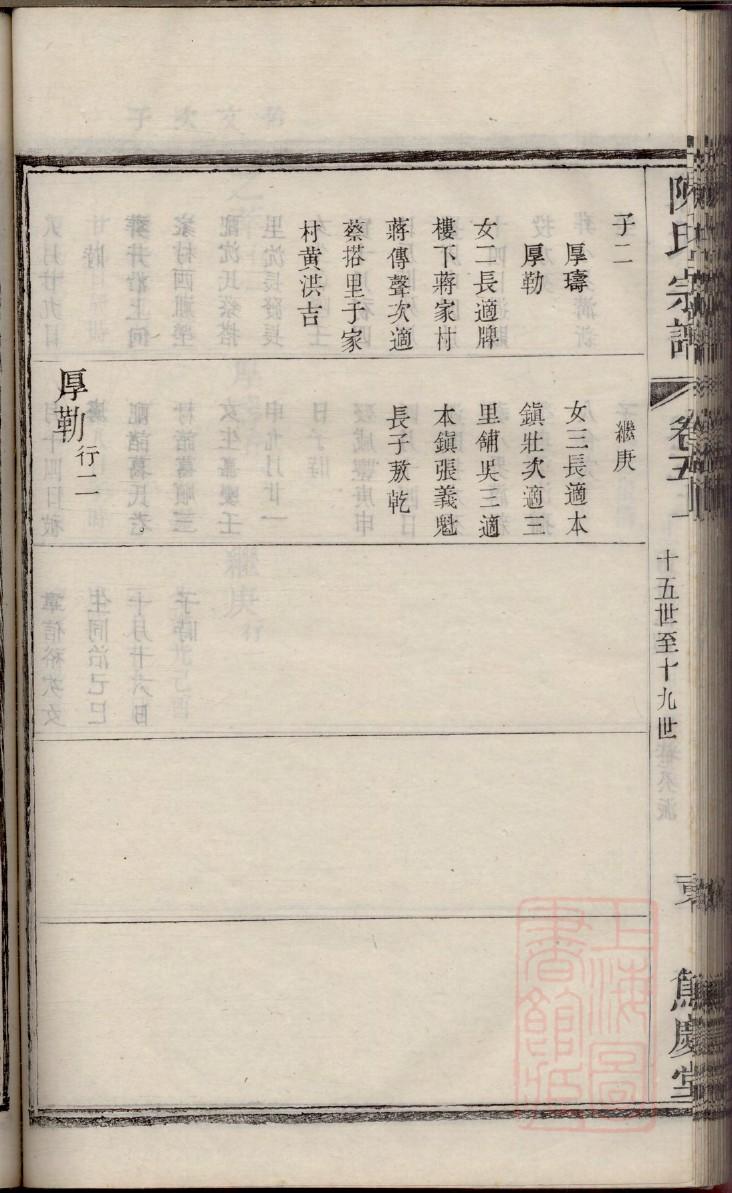 陳氏宗譜
卷五
十五世至十九世
東
篤慶堂
子二
厚璹
厚勒
女二長適牌
樓下蔣家村
蔣傳聲次適
蔡搭里于家
村黄洪吉
繼庚
女三長適本
鎮壯次適三
里舖吳三適
本鎮張義魁
長子敖乾
厚勒 行二
上海圖書館藏